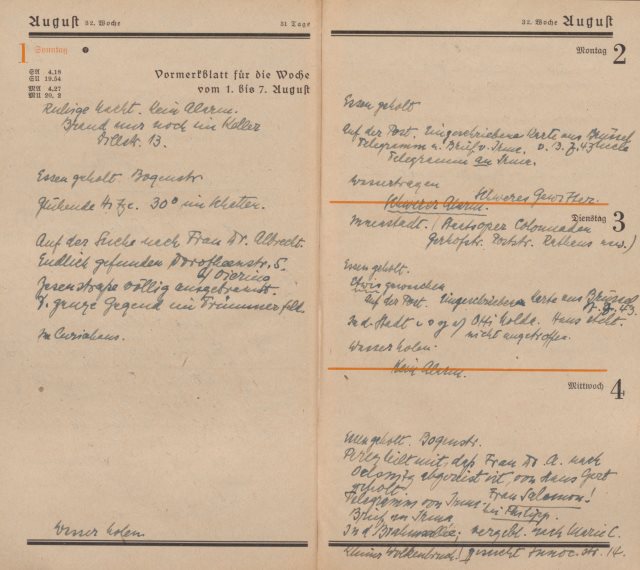 August 32. Woche 31 Tage
1 Sonntag
SA 4.18
SU 19.54
MA 4.27
MU 20. 2
Vormerkblatt für die Woche
vom 1. bis 7. August
Ruhige Nacht. Kein Alarm.
Brand nur noch im Keller
Dillstr. 13.
Essen geholt Bogenstr.
glühende Hitze. 30° im Schatten.
Auf der Suche nach Frau Dr. Albrecht.
Endlich gefunden Dorotheenstr. 5.
völlig ausgebrannt.
D. ganze Gegend ein Trümmerfeld.
Im Curiohaus.
Wasser holen
32. Woche August
Montag 2
Essen geholt
Auf der Post. Eingeschriebene Karte aus Brüssel
Telegramm u. Brief v. Irma. v. 13. 7. 43
Telegramm an Irma.
Wassertragen
Schweres Gewitter.
Schwerer Alarm.
Dienstag 3
Innenstadt. (Staatsoper Colonnaden
Gerhofstr. Poststr. Rathaus usw.)
Essen geholt.
Etwas gewaschen
Auf der Post. Eingeschriebene Karte aus Brüssel
In d. Stadt Haus steht.
nicht angetroffen.
Wasser holen.
Kein Alarm.
Mittwoch 4
Essen geholt. Bogenstr.
teilt mit, daß Frau Dr. A. nach
abgereist ist, von Hans Gert
geholt.
Telegramm von Irma. Frau Salomon!
Brief an Irma bei Philipp.
In d. Brahmsallee; vergebl. nach Marie C.
Kleiner Wolkenbruch! gesucht Innoc. str. 14.